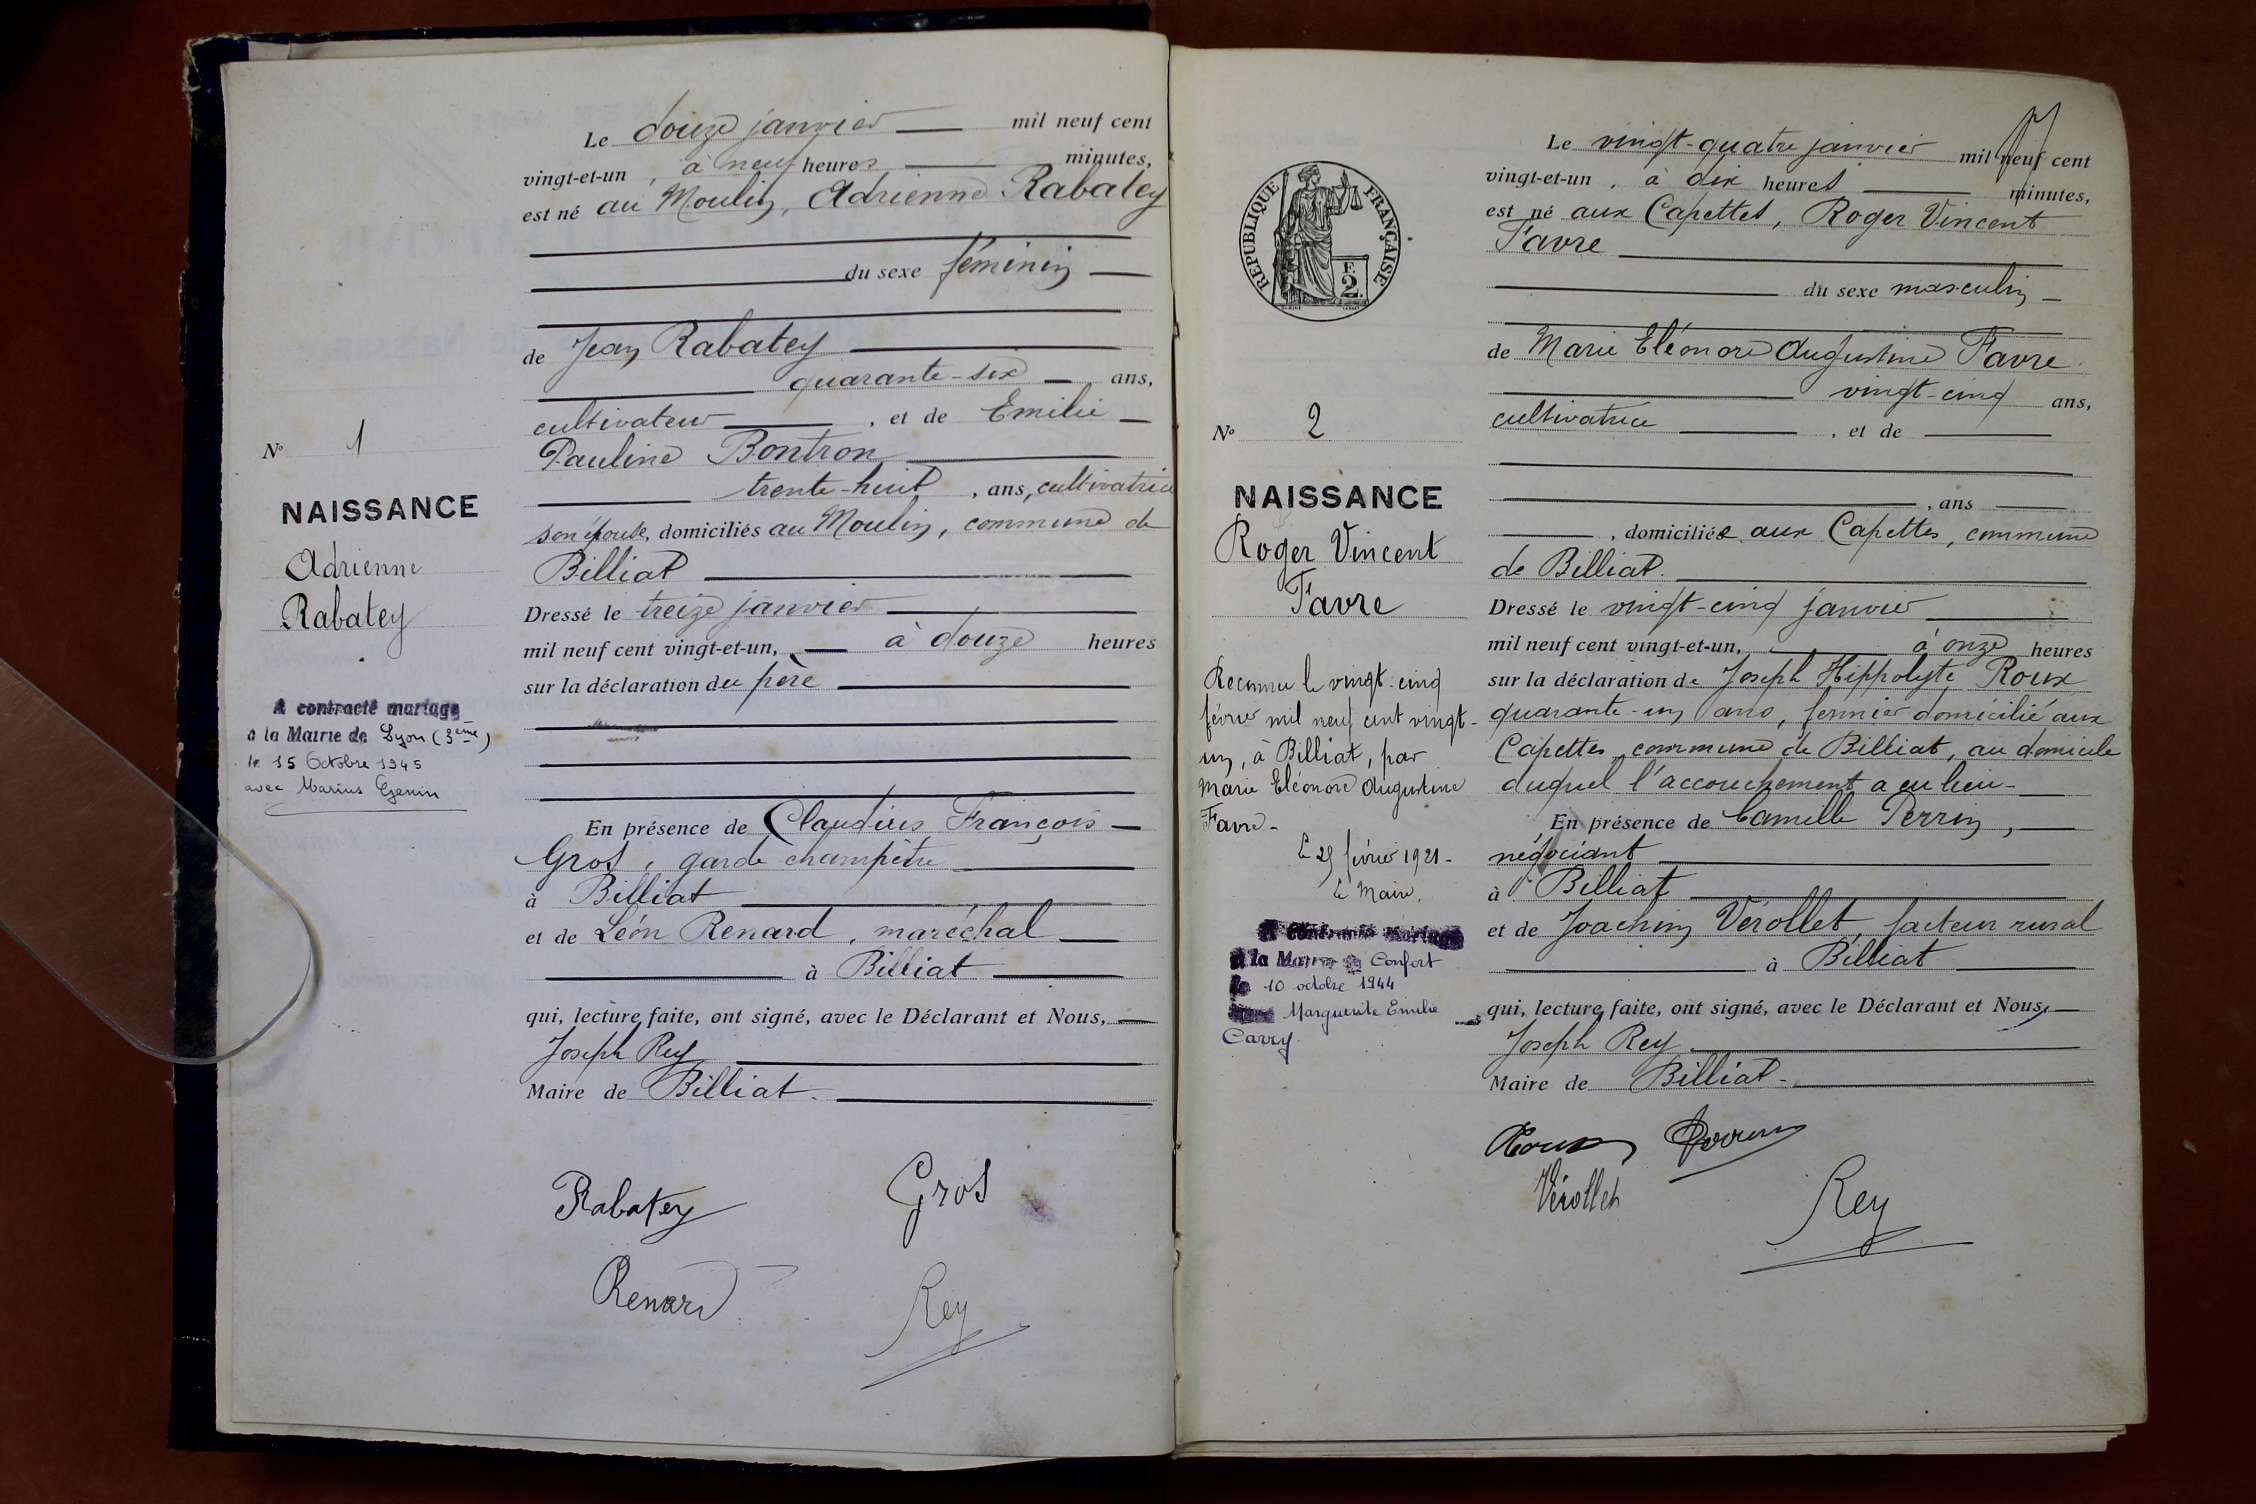 Le douze janvier mil neuf cent
vingt-et-un, à neuf heures minutes,
est né au Moulin, Adrienne Rabatey
du sexe féminin
de Jean Rabatey
quarante-six ans,
cultivateur, et de Emilie
Pauline Bontron
trente-huit, ans, cultivatrice
son épouse, domiciliés au Moulin, commune de
Billiat
Dressé le treize janvier
mil neuf cent vingt-et-un, à douze heures
sur la déclaration du père
En présence de Claudius François
Gros, garde champêtre
à Billiat
et de Léon Renard, maréchal
à Billiat
qui, lecture faite, ont signé, avec le Déclarant et Nous,
Joseph Rey
Maire de Billiat.
Nº 1
NAISSANCE
Adrienne
Rabatey
A contracté mariage
à la Mairie de Lyon (3ème)
le 15 Octobre 1945
avec Marius Genin
Rabatey Gros
Renard Rey
7
Le vingt-quatre janvier mil neuf cent
vingt-et-un, à dix heures minutes,
est né aux Capettes, Roger Vincent
Favre
du sexe masculin
de Marie Eléonore Augustine Favre
vingt-cinq ans,
cultivatrice, et de
, ans
, domiciliée aux Capettes, commune
de Billiat.
Dressé le vingt-cinq janvier
mil neuf cent vingt-et-un, à onze heures
sur la déclaration de Joseph Hippolyte Roux
quarante-un ans, fermier domicilié aux
Capettes, commune de Billiat, au domicile
duquel l'accouchement a eu lieu-
En présence de Camille Perrin,
négociant
à Billiat
et de Joachim Vérollet, facteur rural
à Billiat
qui, lecture faite, ont signé, avec le Déclarant et Nous,
Joseph Rey
Maire de Billiat-
RÉPUBLIQUE FRANÇAISE
F.
2
Nº 2
NAISSANCE
Roger Vincent
Favre
Reconnu le vingt-cinq
février mil neuf cent vingt-
un, à Billiat, par
Marie Eléonore Augustine
Favre-
Le 25 février 1921-
Le Maire,
A contracté mariage
à la Mairie de Confort
le 10 octobre 1944
Marguerite Emilie
Carry
Roux Perrin
Vérollet
Rey